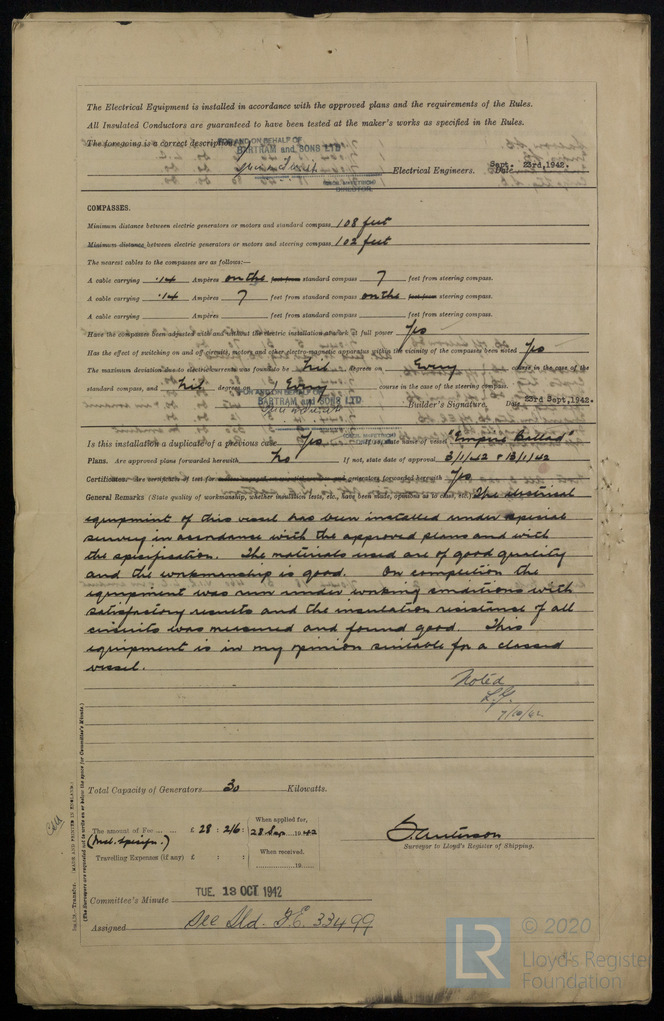 The Electrical Equipment is installed in accordance with the approved plans and the requirements of the Rules.
All Insulated Conductors are guaranteed to have been tested at the maker's works as specified in the Rules.
The foregoing is a correct description.
FOR AND ON BEHALF OF
BARTRAM and SONS LTD
Electrical Engineers. Date Sept. 23rd, 1942.
DIRECTOR
COMPASSES.
Minimum distance between electric generators or motors and standard compass 108 feet
Minimum distance between electric generators or motors and steering compass 102 feet
The nearest cables to the compasses are as follows:—
A cable carrying .14 Ampères on the feet from standard compass 7 feet from steering compass.
A cable carrying .14 Ampères 7 feet from standard compass on the feet from steering compass.
A cable carrying Ampères feet from standard compass feet from steering compass.
Have the compasses been adjusted with and without the electric installation at work at full power Yes
Has the effect of switching on and off circuits, motors and other electro-magnetic apparatus within the vicinity of the compasses been noted Yes
The maximum deviation due to electric currents was found to be Nil degrees on Every course in the case of the
standard compass, and Nil degrees on Every course in the case of the steering compass.
FOR AND ON BEHALF OF
BARTRAM and SONS LTD
Builder's Signature. Date 23rd Sept, 1942.
DIRECTOR
Is this installation a duplicate of a previous case Yes If so, state name of vessel "Empire Ballad"
Plans. Are approved plans forwarded herewith No If not, state date of approval 3/1/42 & 13/1/42
Certificates. Are certificates of test for generators forwarded herewith Yes
General Remarks (State quality of workmanship, whether insulation tests, etc., have been made, opinion as to class, etc.) The electrical
equipment of this vessel has been installed under special
survey in accordance with the approved plans and with
the specification. The materials used are of good quality
and the workmanship is good. On completion the
equipment was run under working conditions with
satisfactory results and the insulation resistance of all
circuits was measured and found good. This
equipment is in my opinion suitable for a classed
vessel.
Noted
7/10/42
Total Capacity of Generators 30 Kilowatts.
The amount of Fee ... ... £ 28 : 2/6 : When applied for, 28 Sep. 1942
(Incl. Specifn.)
When received,
Travelling Expenses (if any) £ : : 19
Surveyor to Lloyd's Register of Shipping.
Committee's Minute TUE. 13 OCT 1942
Assigned See Sld. F.E. 33499
Transfer. (MADE AND PRINTED IN ENGLAND.)
(The Surveyors are requested not to write on or below the space for Committee's Minute.)
LR
© 2020
Lloyd's Register
Foundation